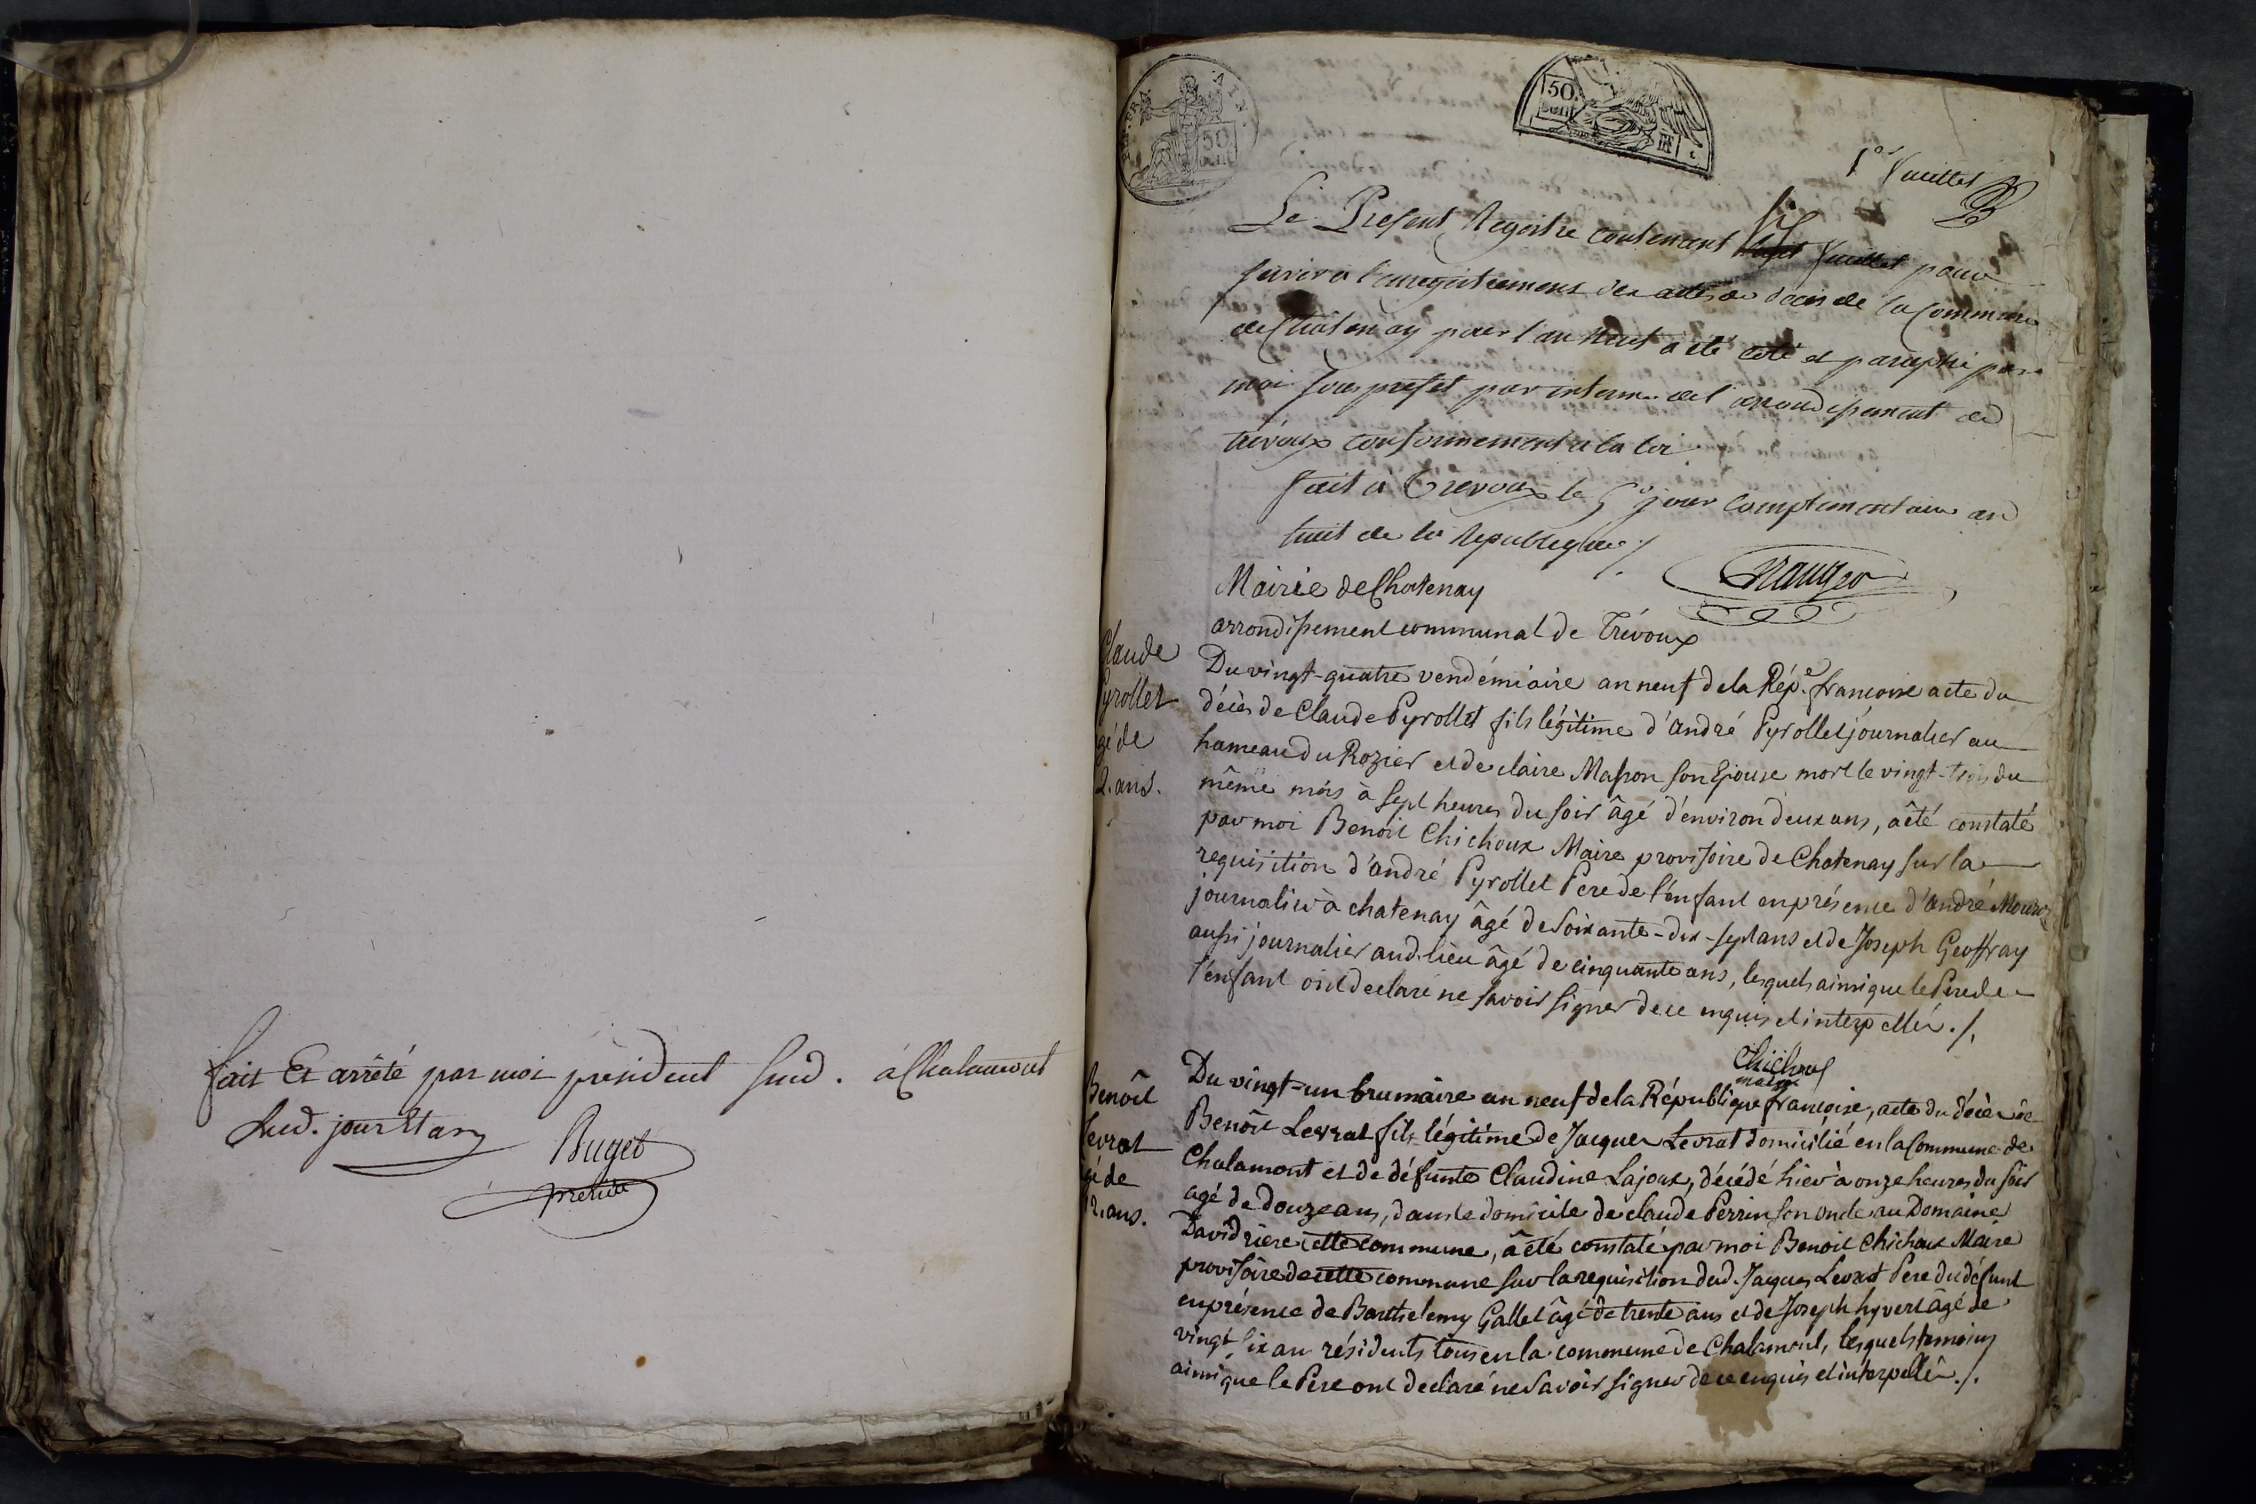 fait Et arrêté par moi president susd. à Chalamont
Lesd. jour Et an
Buget
president
REP. FRA.
AIN.
50
cent
50.
cent
1er feuillet
Le Present Registre contenant six feuillet pour
servir a l'enregistrement des actes de décès de la Commune
de Chatenay pour l'an neuf a été coté et paraphé par
moi sous prefet par interim de l'arrondissement de
trévoux conformement a la loi
fait à Trevoux le 5e jour complementaire an
huit de la Republique ./.
Mairie de Chatenay
arrondissement communal de Trévoux
Claude
Pyrollet
agé de
2. ans.
Du vingt-quatre vendémiaire an neuf de la Répe. francoise acte du
décès de Claude Pyrollet fils légitime d'andré Pyrollet journalier au
hameau du Rozier et de claire Masson son Epouse mort le vingt-trois du
même mois à sept heures du soir âgé d'environ deux ans, a été constaté
par moi Benoit Chichoux Maire provisoire de Chatenay sur la
requisition d'andré Pyrollet Pere de l'enfant en présence d'andré
journalier à chatenay âgé de soixante-dix-sept ans et de Joseph Geoffray
aussi journalier aud. lieu âgé de cinquante ans, lesquels ainsi que le Pere de
l'enfant ont declaré ne savoir signer de ce enquis et interpellés ./.
Chichoux
maire
Benoît
Levrat
agé de
12. ans.
Du vingt-un brumaire an neuf de la République francoise, acte du décès de
Benoît Levrat fils légitime de Jacques Levrat domicilié en la Commune de
Chalamont et de défunte Claudine Lajoux, décédé hier à onze heures du soir
agé de douze ans, dans le domicile de claude Perrin son oncle au Domaine
David riere cette commune, a été constaté par moi Benoit Chichoux Maire
provisoire de cette commune sur la requisition dud. Jacques Levrat Pere du défunt
en présence de Barthelemy Gallet âgé de trente ans et de Joseph hyvert âgé de
vingt six an résidents tous en la commune de Chalamont, lesquels temoins
ainsi que le Pere ont declaré ne savoir signer de ce enquis et interpellés ./.